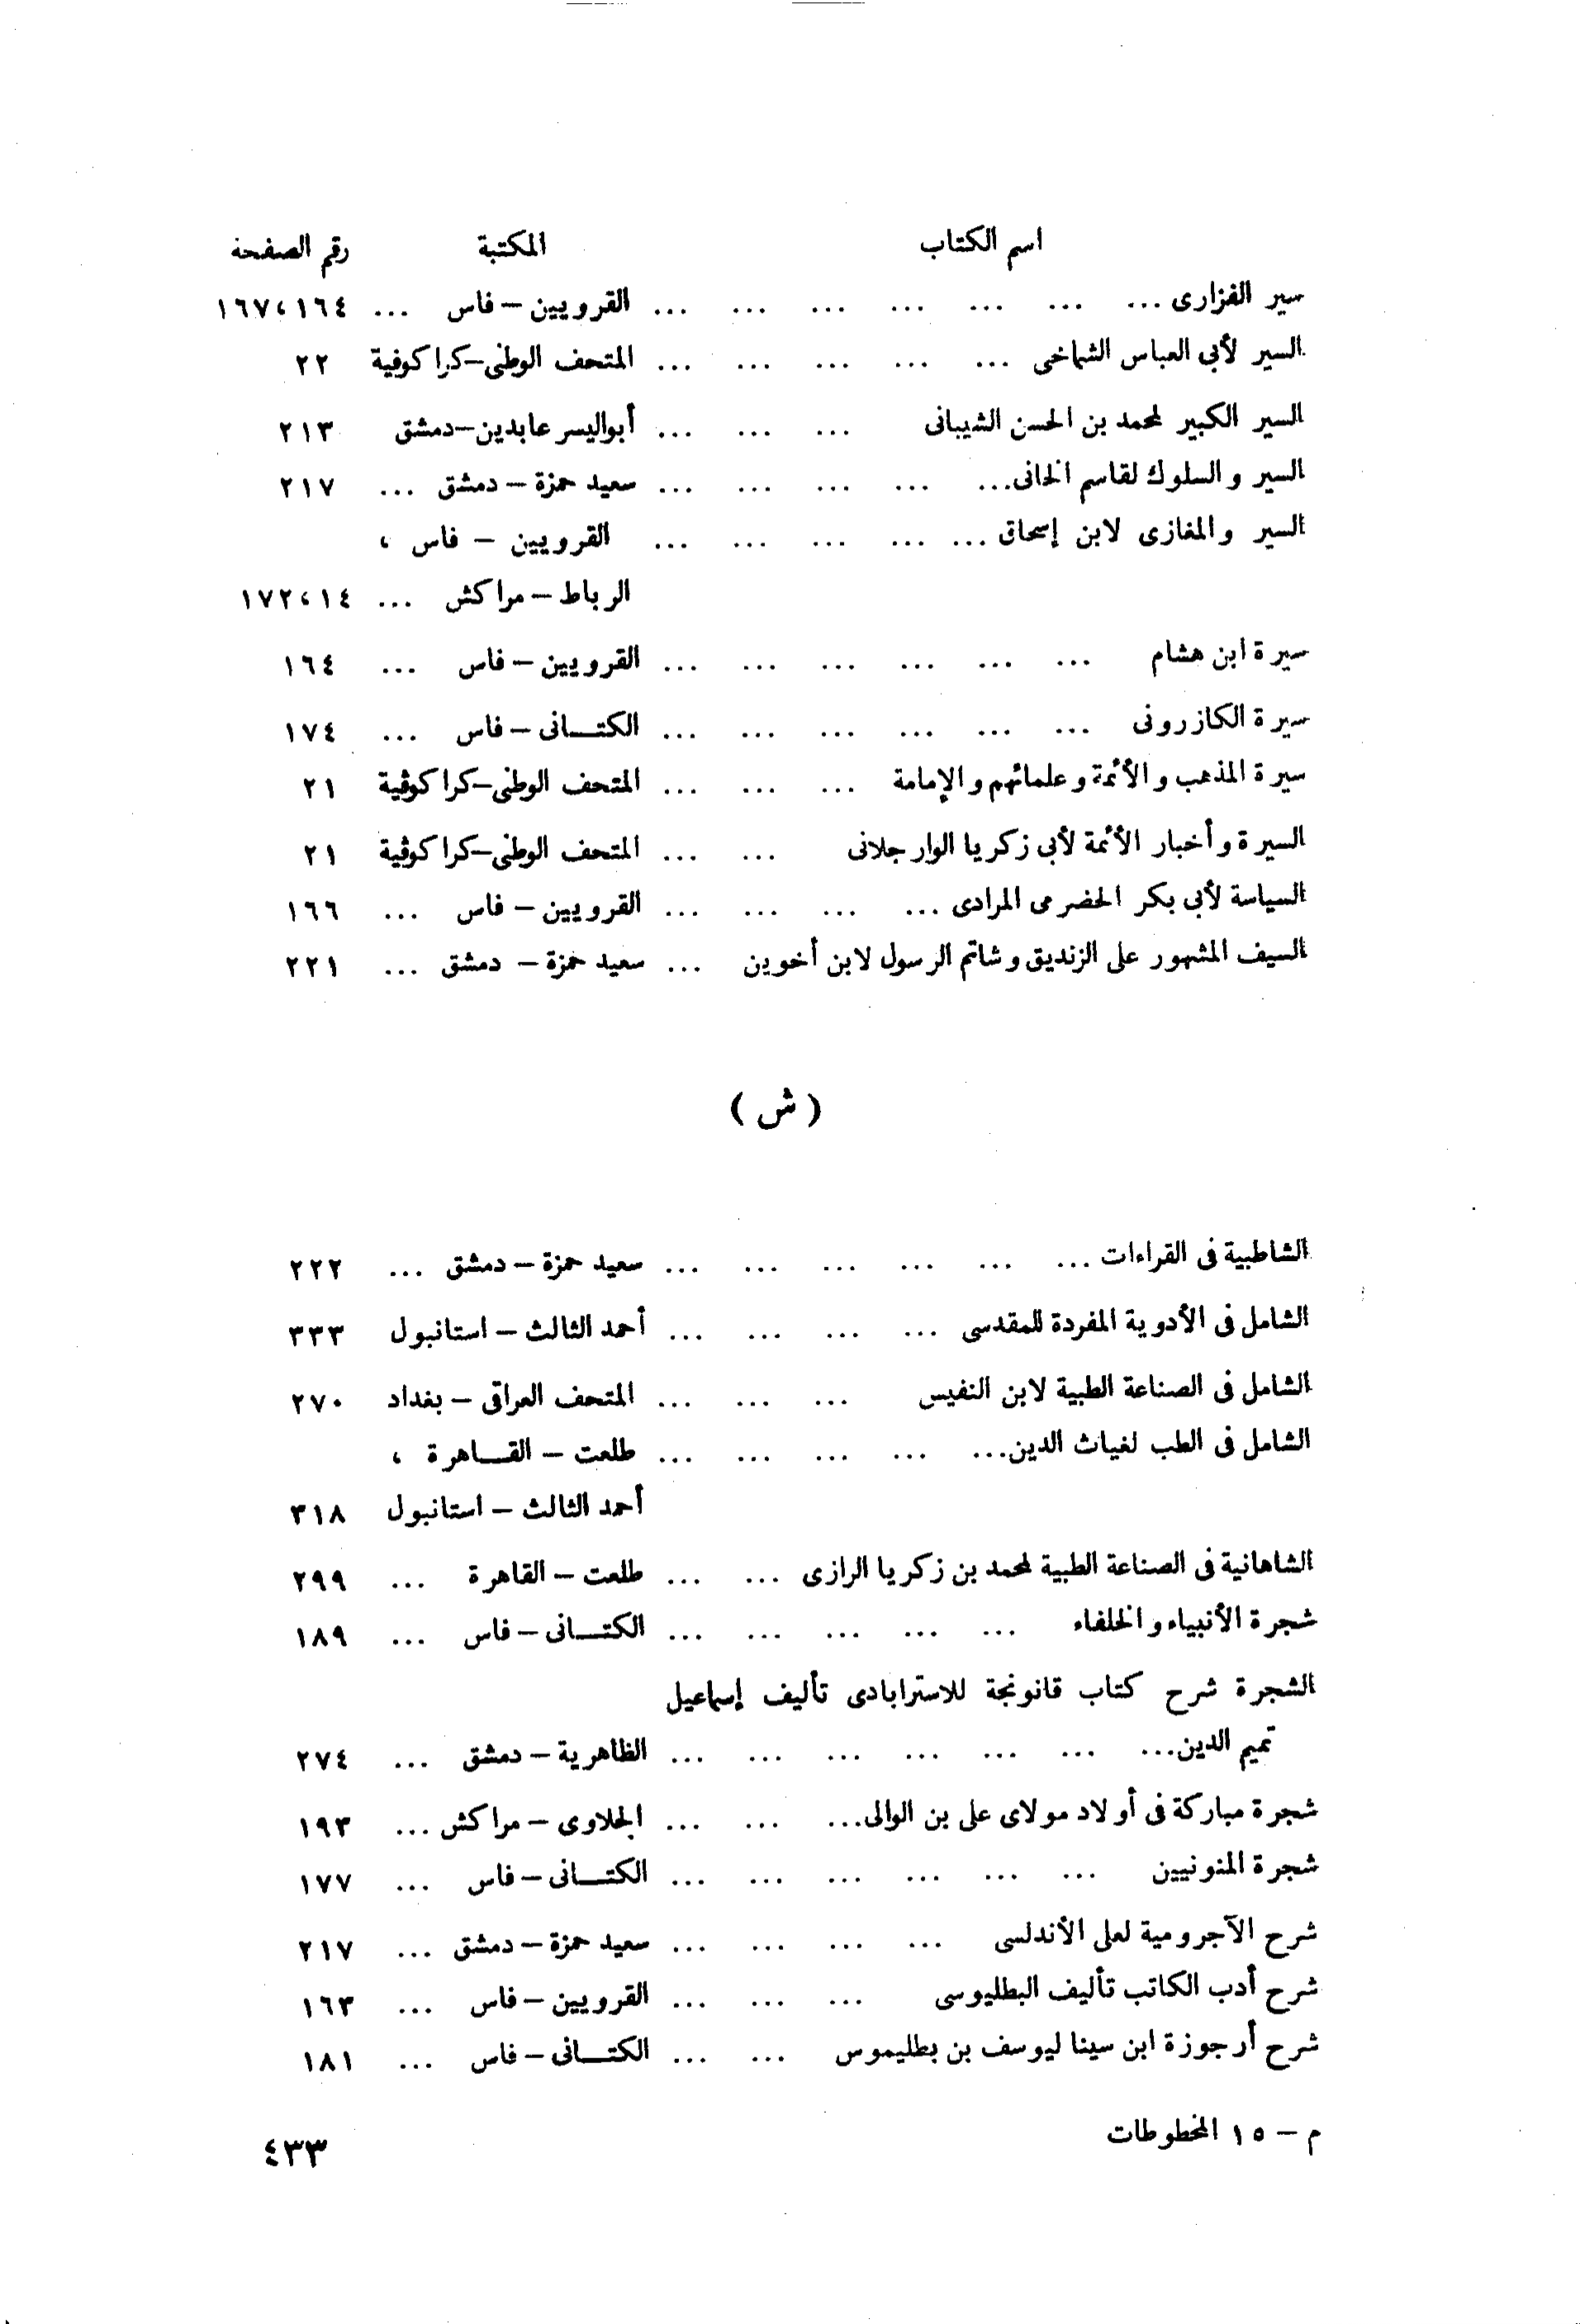 اسم الكتاب المكتبة رقم الصفحة
سير الفزارى ... ... ... ... ... ... ... القرويين – فاس ... ١٦٤،١٦٧
السير لأبى العباس الشماخى ... ... ... ... ... المتحف الوطنى–كراكوفية ٢٢
السير الكبير لمحمد بن الحسن الشيبانى ... ... ... أبواليسر عابدين–دمشق ٢١٣
السير والسلوك لقاسم الخانى... ... ... ... ... سعيد حمزة – دمشق ... ٢١٧
السير والمغازى لابن إسحاق ... ... ... ... ... القرويين – فاس ،
الرباط – مراكش ... ١٤،١٧٢
سيرة ابن هشام ... ... ... ... ... ... القرويين – فاس ... ١٦٤
سيرة الكازرونى ... ... ... ... ... ... الكتــانى – فاس ... ١٧٤
سيرة المذهب والأئمة وعلمائهم والإمامة ... ... ... المتحف الوطنى–كراكوڤية ٢١
السيرة وأخبار الأئمة لأبى زكريا الوارجلانى ... ... المتحف الوطنى–كراكوڤية ٢١
السياسة لأبى بكر الحضرمى المرادى ... ... ... ... القرويين – فاس ... ١٦٦
السيف المشهور على الزنديق وشاتم الرسول لابن أخوين ... سعيد حمزة – دمشق ... ٢٢١
( ش )
الشاطبية فى القراءات ... ... ... ... ... ... سعيد حمزة – دمشق ... ٢٢٢
الشامل فى الأدوية المفردة للمقدسى ... ... ... ... أحمد الثالث – استانبول ٣٣٣
الشامل فى الصناعة الطبية لابن النفيس ... ... ... المتحف العراقى – بغداد ٢٧٠
الشامل فى الطب لغياث الدين... ... ... ... ... طلعت – القــاهرة ،
أحمد الثالث – استانبول ٣١٨
الشاهانية فى الصناعة الطبية لمحمد بن زكريا الرازى ... ... طلعت – القاهرة ... ٢٩٩
شجرة الأنبياء والخلفاء ... ... ... ... ... الكتــانى – فاس ... ١٨٩
الشجرة شرح كتاب قانونجة للاسترابادى تأليف إسماعيل
تميم الدين... ... ... ... ... ... ... الظاهرية – دمشق ... ٢٧٤
شجرة مباركة فى أولاد مولاى على بن الوالى... ... ... الجلاوى – مراكش ... ١٩٣
شجرة المنونيين ... ... ... ... ... ... الكتــانى – فاس ... ١٧٧
شرح الآجرومية لعلى الأندلسى ... ... ... ... سعيد حمزة – دمشق ... ٢١٧
شرح أدب الكاتب تأليف البطليوسى ... ... ... القرويين – فاس ... ١٦٣
شرح أرجوزة ابن سينا ليوسف بن بطليموس ... ... الكتــانى – فاس ... ١٨١
م – ١٥ المخطوطات ٤٣٣